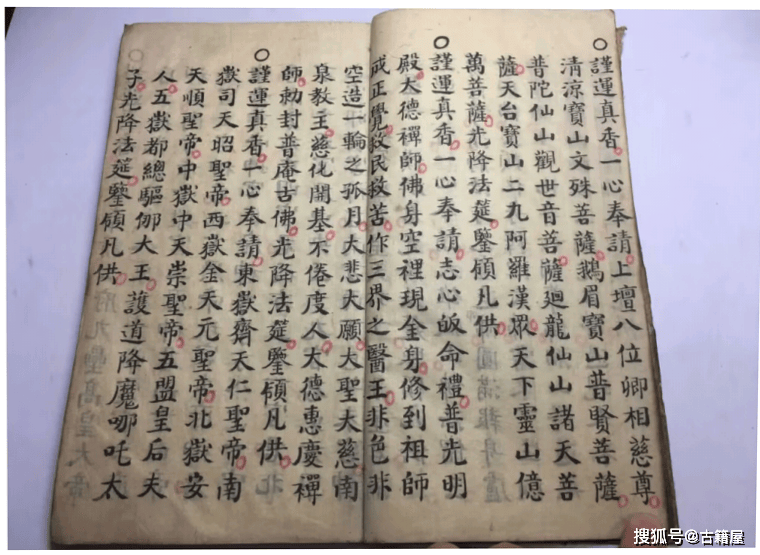 ○謹運真香一心奉請上壇八位卿相慈尊
清涼寶山文殊菩薩鵝眉寶山普賢菩薩
普陀仙山觀世音菩薩廻龍仙山諸天菩
薩天台寶山二九阿羅漢眾天下靈山億
萬菩薩光降法筵鑒領凡供
○謹運真香一心奉請志心皈命禮普光明
殿大德禪師佛身空裡現全身修到祖師
成正覺救民救苦作三界之醫王非色非
空造一輪之孤月大悲大願大聖大慈南
泉教主慈化開基不倦度人大德惠慶禪
師勅封普庵古佛光降法筵鑒領凡供
○謹運真香一心奉請東嶽齊天仁聖帝南
嶽司天昭聖帝西嶽金天元聖帝北嶽安
天順聖帝中嶽中天崇聖帝五盟皇后夫
人五嶽都總驅邪大王護道降魔哪吒太
子光降法筵鑒領凡供
搜狐号@古籍屋